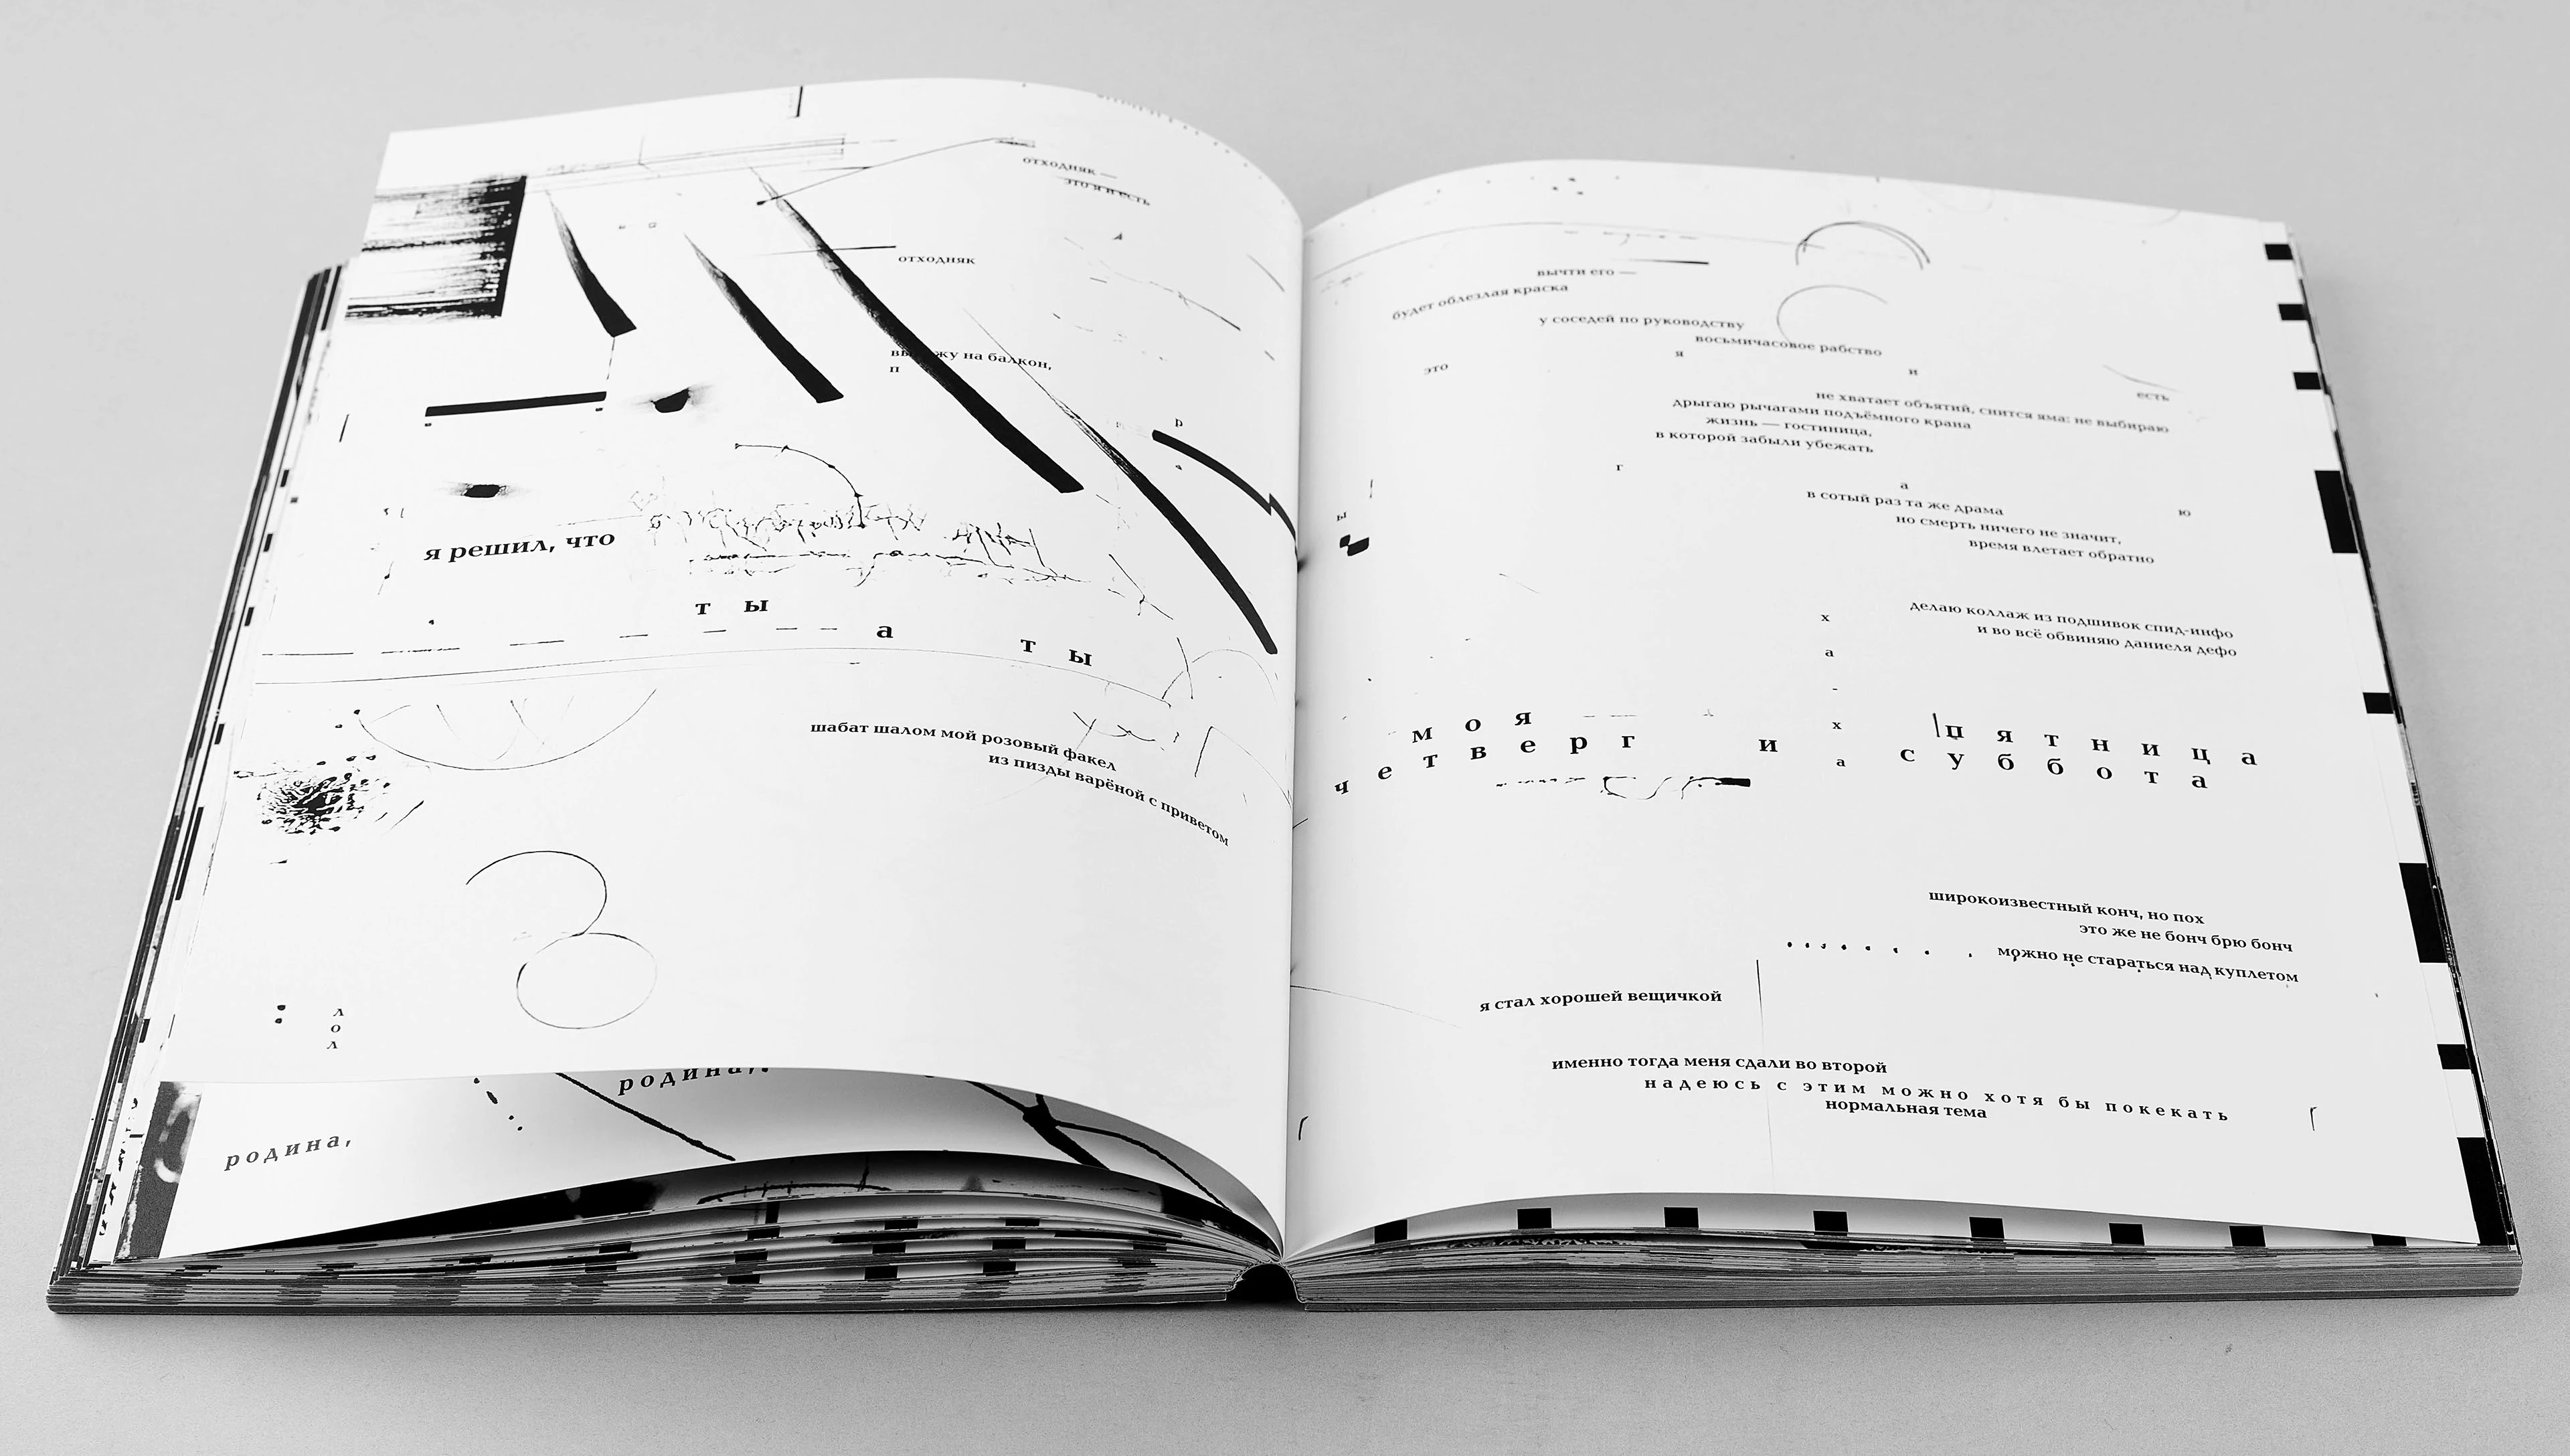 отходняк —
это я и есть
отходняк
на балкон,
п
р
я решил, что
т ы
а
т ы
шабат шалом мой розовый факел
из пизды варёной с приветом
л
о
л
родина,
родина,
вычти его —
будет облезлая краска
у соседей по руководству
восьмичасовое рабство
я
это
и
есть
не хватает объятий, снится яма: не выбираю
дрыгаю рычагами подъёмного крана
жизнь — гостиница,
в которой забыли убежать
г
а
в сотый раз та же драма
ю
ы
но смерть ничего не значит,
время влетает обратно
делаю коллаж из подшивок спид-инфо
и во всё обвиняю даниеля дефо
х
а
-
х
а
м о я
п я т н и ц а
ч е т в е р г и с у б б о т а
широкоизвестный конч, но пох
это же не бонч брю бонч
можно не стараться над куплетом
я стал хорошей вещичкой
именно тогда меня сдали во второй
надеюсь с этим можно хотя бы покекать
нормальная тема